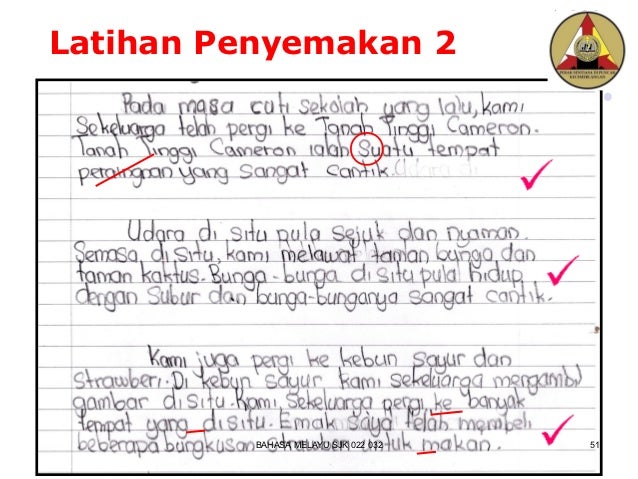 Latihan Penyemakan 2
Pada masa cuti sekolah yang lalu, kami
Sekeluarga telah pergi ke Tanah Tinggi Cameron.
Tanah Tinggi Cameron ialah Suatu tempat
yang sangat cantik.
Udara di situ pula sejuk dan nyaman.
Semasa, di situ, kami melawat taman bunga dan
taman kaktus. Bunga-bunga di situ pula hidup
dengan Subur dan bunga-bunganya sangat cantik.
Kami juga pergi ke kebun sayur dan
Strawberi. Di kebun sayur kami sekeluarga mengambil
gambar di situ. Kami, sekeluarga pergi ke banyak
tempat yang di situ. Emak saya telah membeli
beberapa bungkusan makan.
BAHASA MELAYU SJK 022 032
51